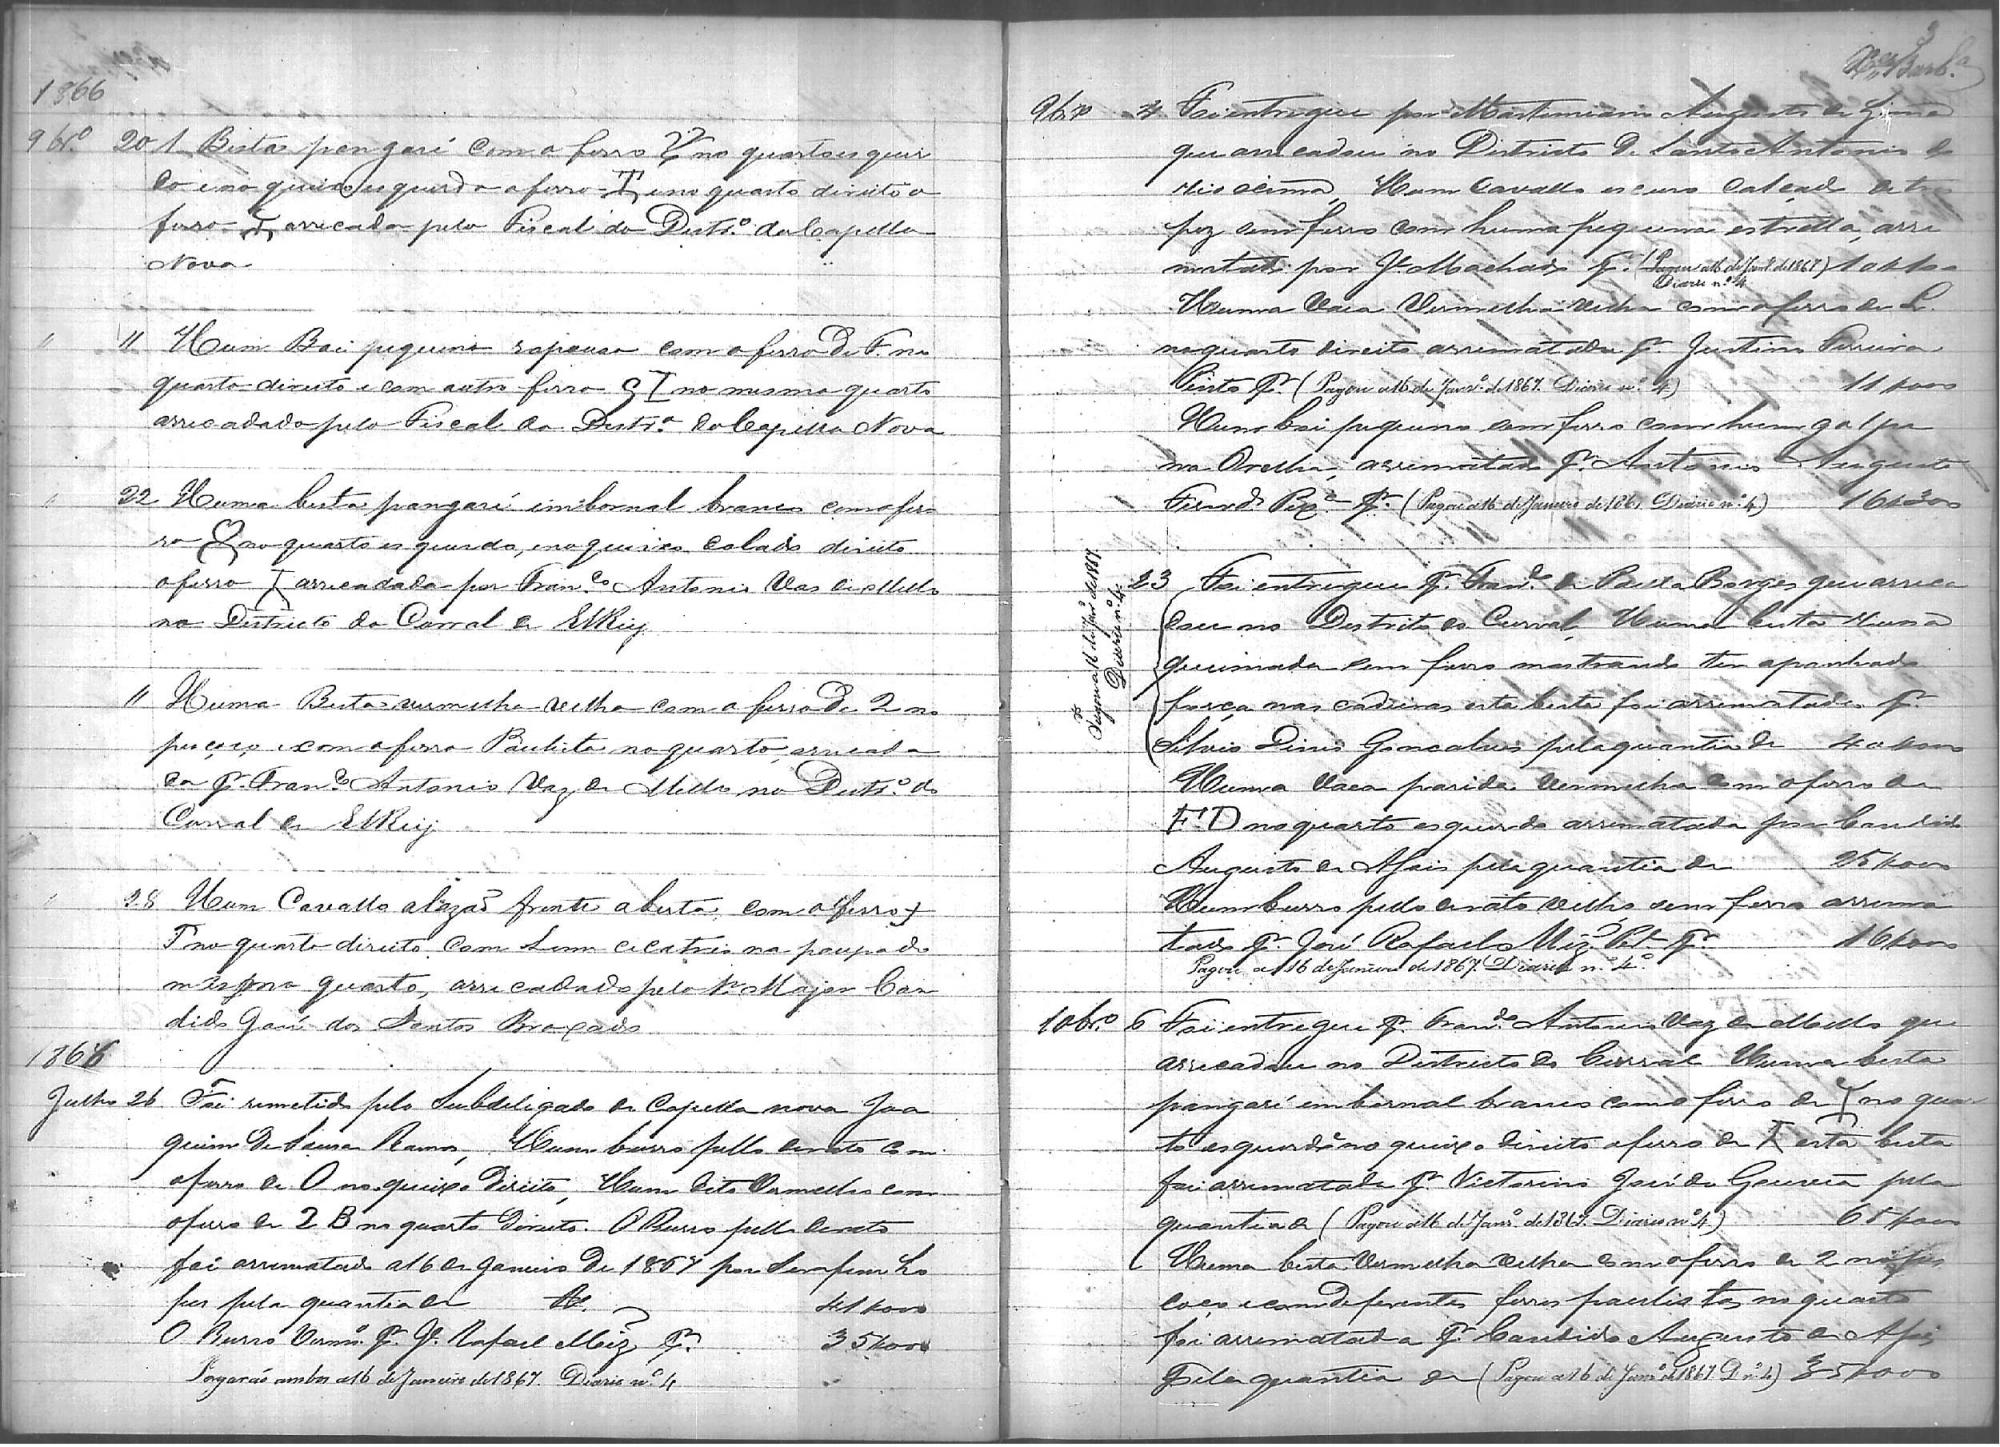 1866
9br.o 20 1 Bêsta pangaré com o ferro no quarto esquer
do e no queixo esquerdo o ferro e no quarto direito o
ferro arrecadada pelo Fiscal do Destr.o da Capella
Nova
" 11 Hum Boi pequeno raposa com o ferro de F. no
quarto direito e com outro ferro no mesmo quarto
arrecadado pelo Fiscal do Destr.o da Capella Nova
" 22 Huma besta pangaré imbornal branco com o fer
ro no quarto esquerdo, e no queixo do lado direito
o ferro arrecadada por Fran.co Antonio Vas de Mello
no Districto do Curral de ElRey
11 Huma Besta vermelha velha com o ferro de 2 no
pescoço e com o ferro Paulista no quarto, arrecada
da p.r Fran.co Antonio Vaz de Mello no Destr.o do
Curral de ElRey
" 28 Hum Cavallo alazão frente aberta, com o ferro
T no quarto direito com huma cicatris na poupa do
mesmo quarto, arrecadado pelo Major Can
dido José dos Santos Brochado
1866
Julho 26 Foi remetido pelo Subdelegado da Capella nova Joa
quim de Sousa Ramos, Hum burro pello de rato com
o ferro de O no queixo direito, Hum dito Vermelho com
o ferro de 2 B no quarto direito. O Burro pello de rato
foi arrematado a 16 de Janeiro de 1867 por Serafim Lo
pes pela quantia de 41$000
O Burro Verm.o P.r J.e Rafael Miz P.r 35$000
Pagarão ambos a 16 de Janeiro de 1867. Diario n.o 4
3
Barb.a
9br.o 4 Foi entregue por Martimiano Augusto de Lima
que arrecadou no Districto de Santo Antonio do
Rio acima, Hum Cavallo escuro calçado de tres
pez sem ferro com huma pequena estrella, arre
matado por J.e Machado P.r (Pagou a 16 de Janr.o de 1867) 10$100
Diario n.o 4
Huma Vaca Vermelha velha com o ferro de L.
no quarto direito arrematada p.r Justino Pereira
Pinto P.r (Pagou a 16 de Janr.o de 1867. Diario n.o 4) 11$000
Hum boi pequeno sem ferro com hum golpe
na Orelha, arrematado p.r Antonio Augusto
P.r (Pagou a 16 de Janeiro de 1867 Diario n.o 4) 16$300
23 Foi entregue p.r Fran.co de Paula Borges que arreca
dou no Destrito do Curral, Huma besta Ruana
queimada sem ferro mostrando ter apanhado
força nas cadeiras esta besta foi arrematada p.r
Silvio Dinis Gonçalves pela quantia de 40$000
Pagou a 16 de Janr.o de 1867
Diario n.o 4
Huma Vaca parida Vermelha com o ferro de
F. D no quarto esquerdo arrematada por Candido
Augusto de Assis pela quantia de 25$000
Hum burro pello de rato velho sem ferro arrema
tado p.r José Rafael Miz P.r 16$000
Pagou a 16 de Janeiro de 1867. Diario n.o 4.o
10br.o 6 Foi entregue p.r Fran.co Antonio Vaz de Mello que
arrecadou no Districto do Curral Huma besta
pangaré imbornal branco com o ferro de no quar
to esquerdo no queixo direito o ferro de esta besta
foi arrematada p.r Victorino José de Gouveia pela
quantia de (Pagou a 16 de Janr.o de 1867. Diario n.o 4) 65$000
Huma besta vermelha velha com o ferro de 2 no pes
coço e com deferentes ferros paulistas no quarto
foi arrematada p.r Candido Augusto de Assis
Pela quantia de (Pagou a 16 de Janr.o de 1867 D. n.o 4) 35$000